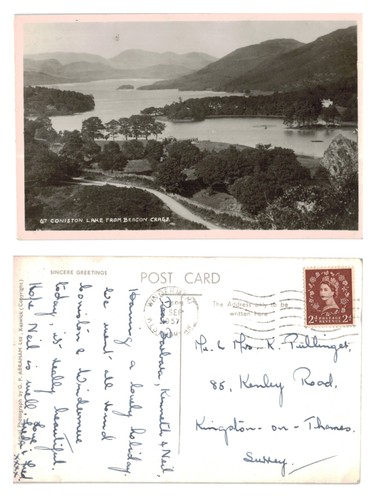 67 CONISTON LAKE FROM BEACON CRAGS.
SINCERE GREETINGS
POST CARD
The Address only to be
written Here
Photograph by G. P. ABRAHAM Ltd. Keswick (Copyright)
WINDERMERE
SEP
1957
2D POSTAGE REVENUE 2D
Dear Barbara, Kenneth & Neil,
Having a lovely holiday.
We went all round
Coniston & Windermere
today, its really beautiful.
Hope Neil is well, Love
& Fred
xxxx
Mr. & Mrs. K. Pullinger,
85, Kenley Road,
Kingston-on-Thames.
Surrey.